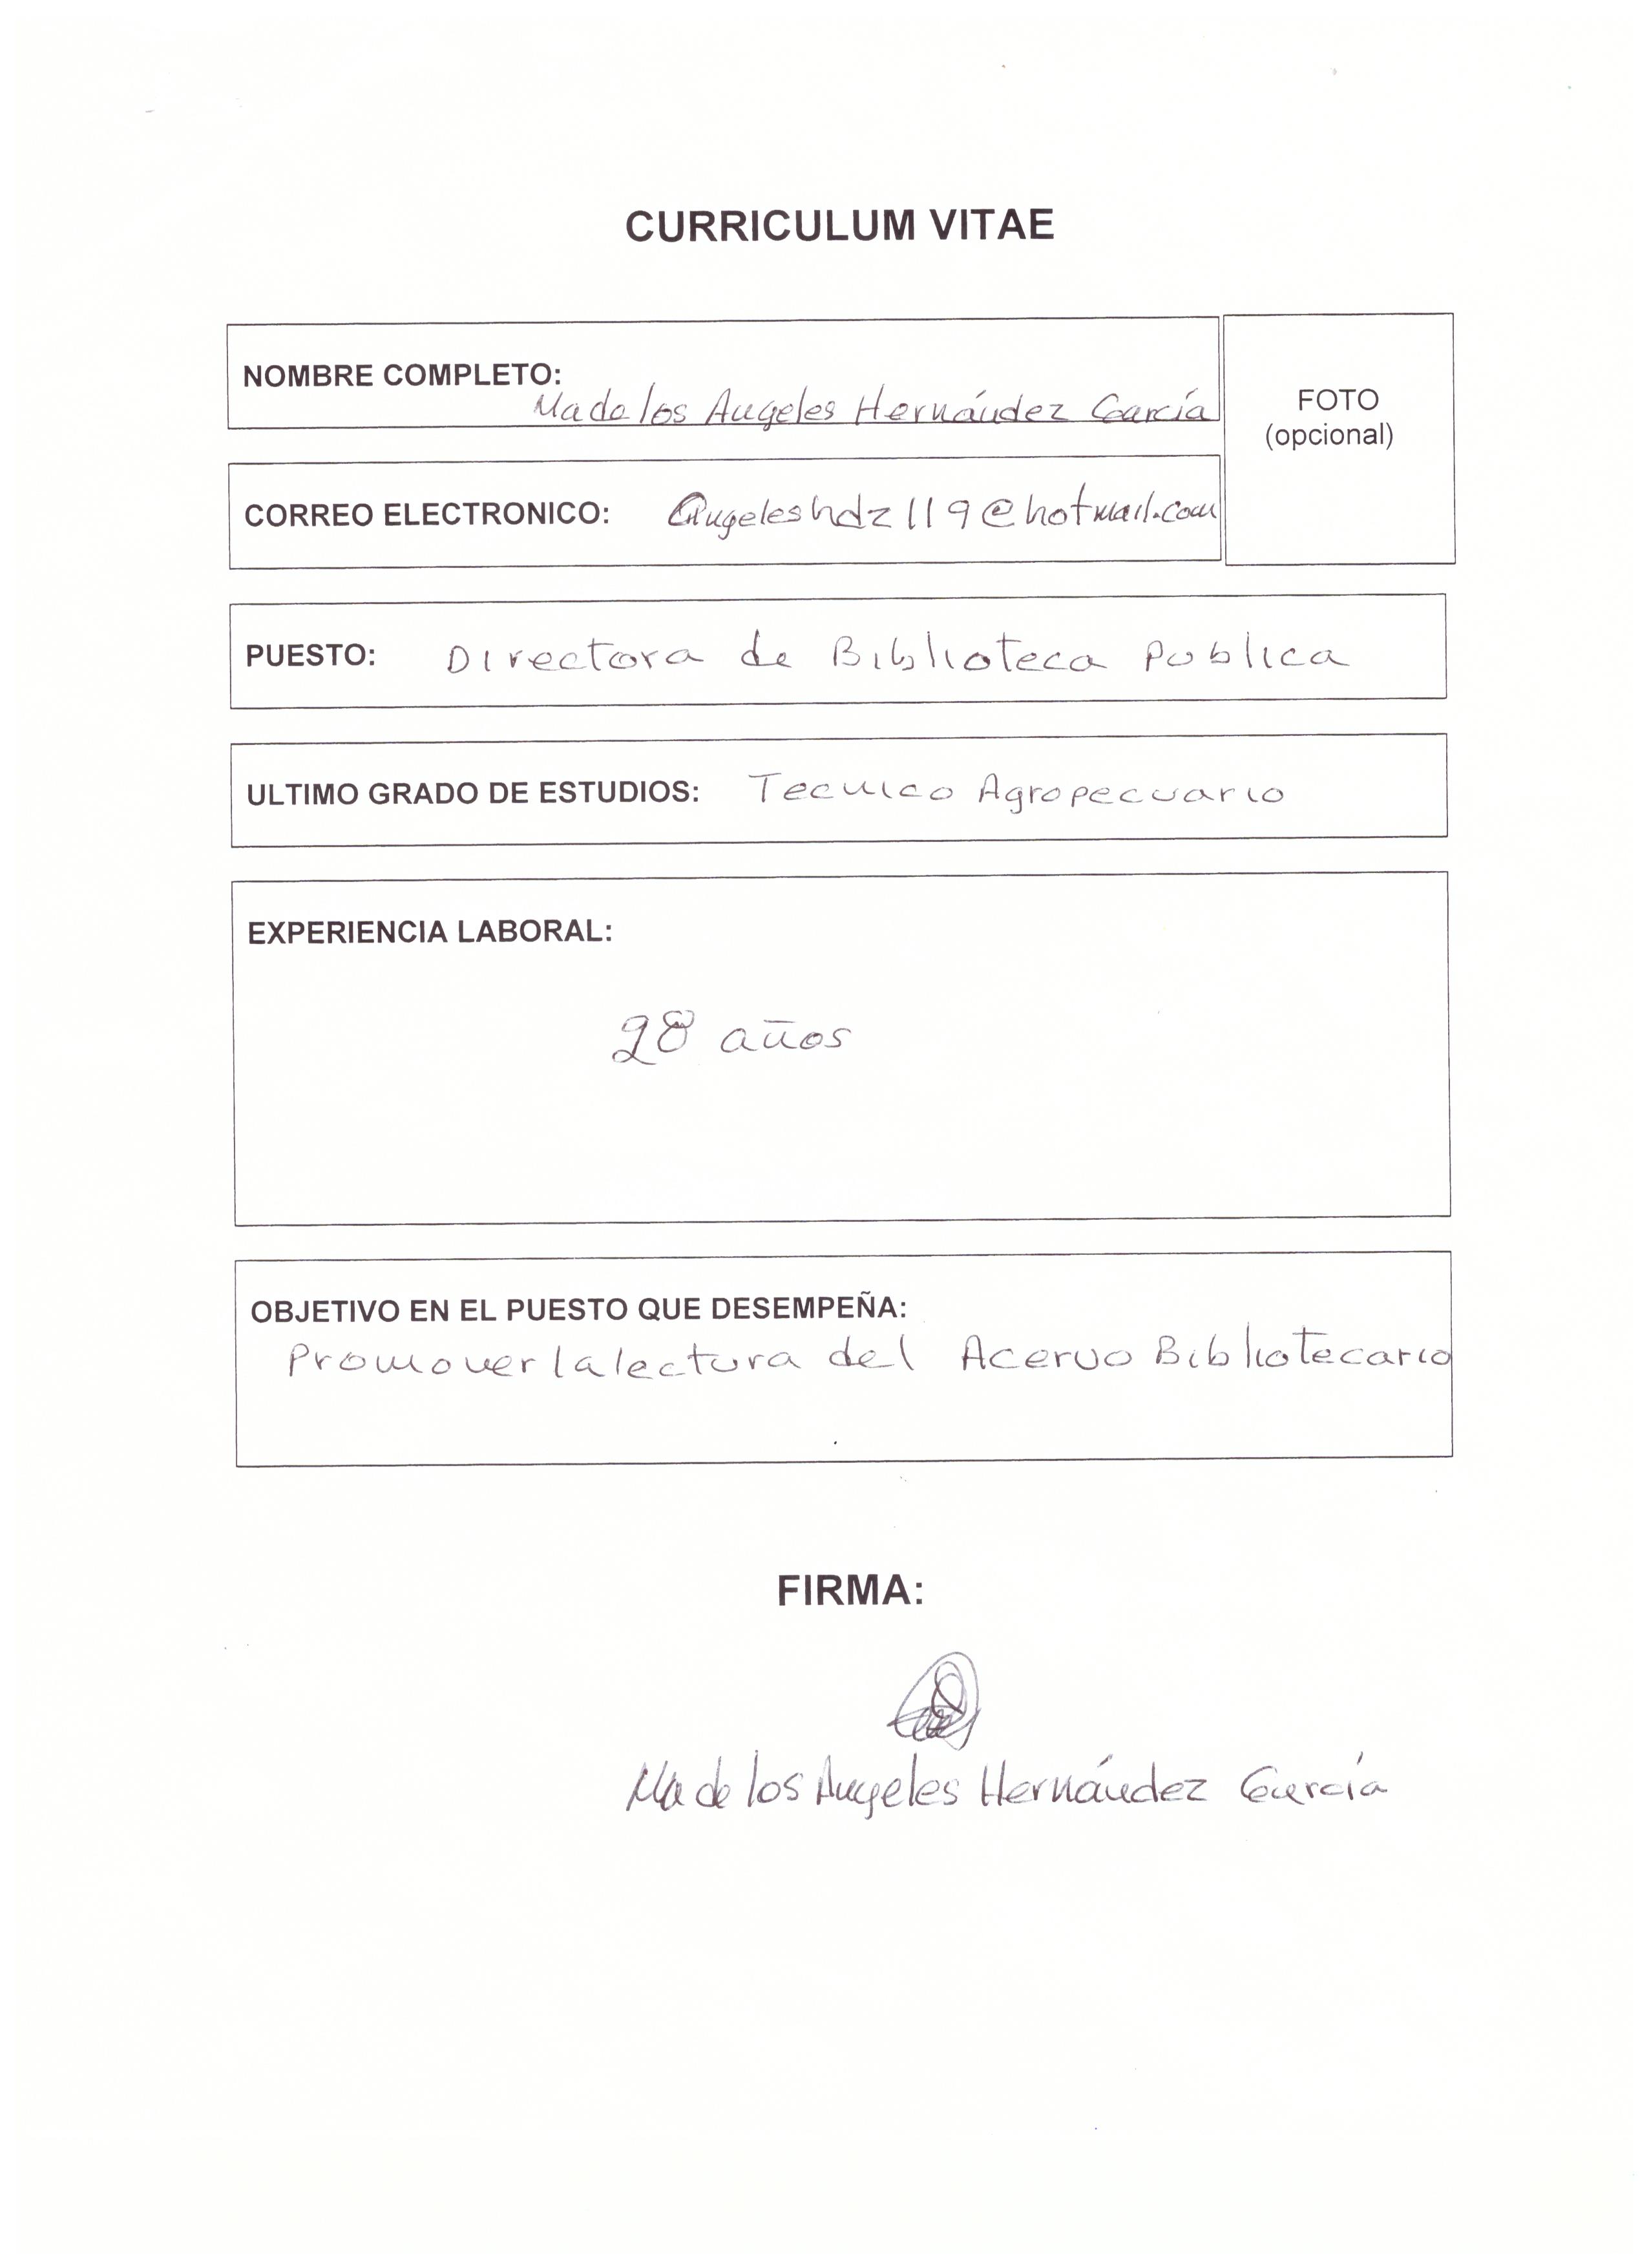 CURRICULUM VITAE
NOMBRE COMPLETO:
Ma de los Angeles Hernández García
FOTO
(opcional)
CORREO ELECTRONICO: Angeleshdz119@hotmail.com
PUESTO: Directora de Biblioteca Publica
ULTIMO GRADO DE ESTUDIOS: Tecnico Agropecuario
EXPERIENCIA LABORAL:
28 años
OBJETIVO EN EL PUESTO QUE DESEMPEÑA:
Promover la lectura del Acervo Bibliotecario
FIRMA:
Ma de los Angeles Hernández García